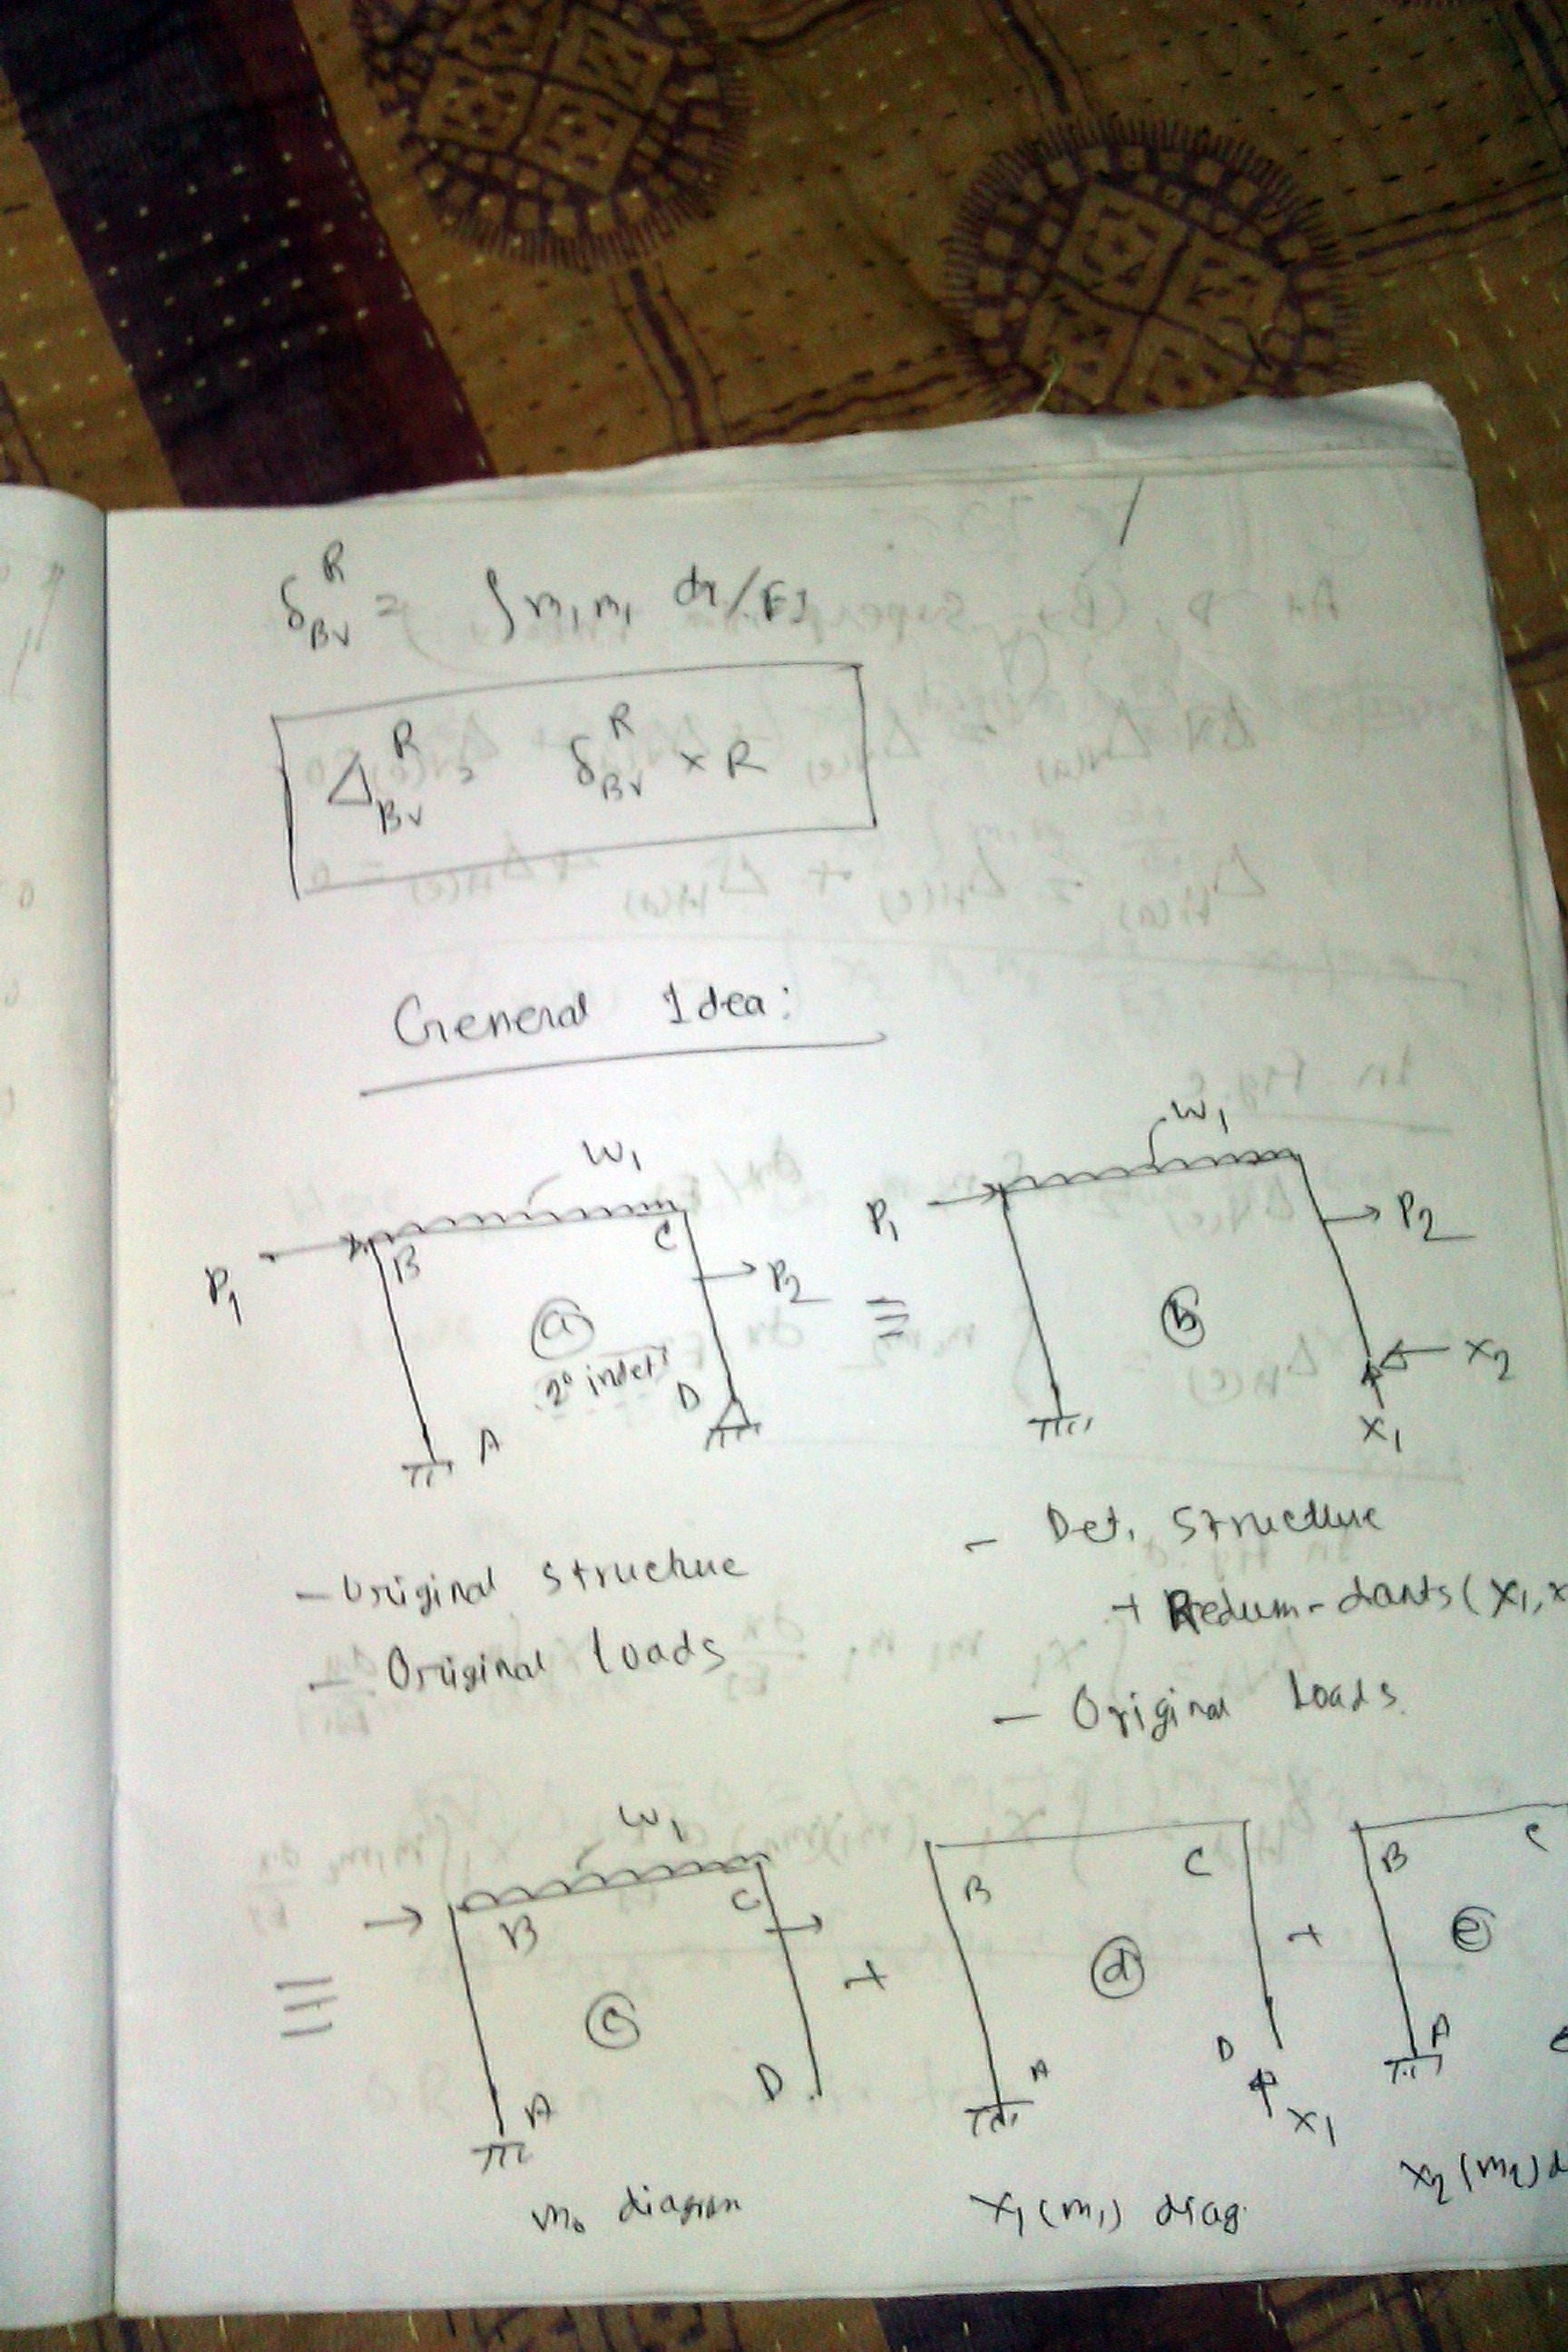 δ_BV^R = ∫ m₁m₁ dx/EI
Δ_BV^R = δ_BV^R × R
General Idea:
W₁
P₁
B
C
P₂
ⓐ
2° indet
D
A
≡
W₁
P₁
P₂
ⓑ
X₂
X₁
– Original structure
– Original loads
– Det. Structure
+ Redun-dants (X₁, X
– Original Loads
≡
W₁
B
C
ⓒ
A
D
+
B
C
ⓓ
A
D
X₁
+
B
C
ⓔ
A
m₀ diagram
X₁(m₁) diag.
X₂(m₂) d